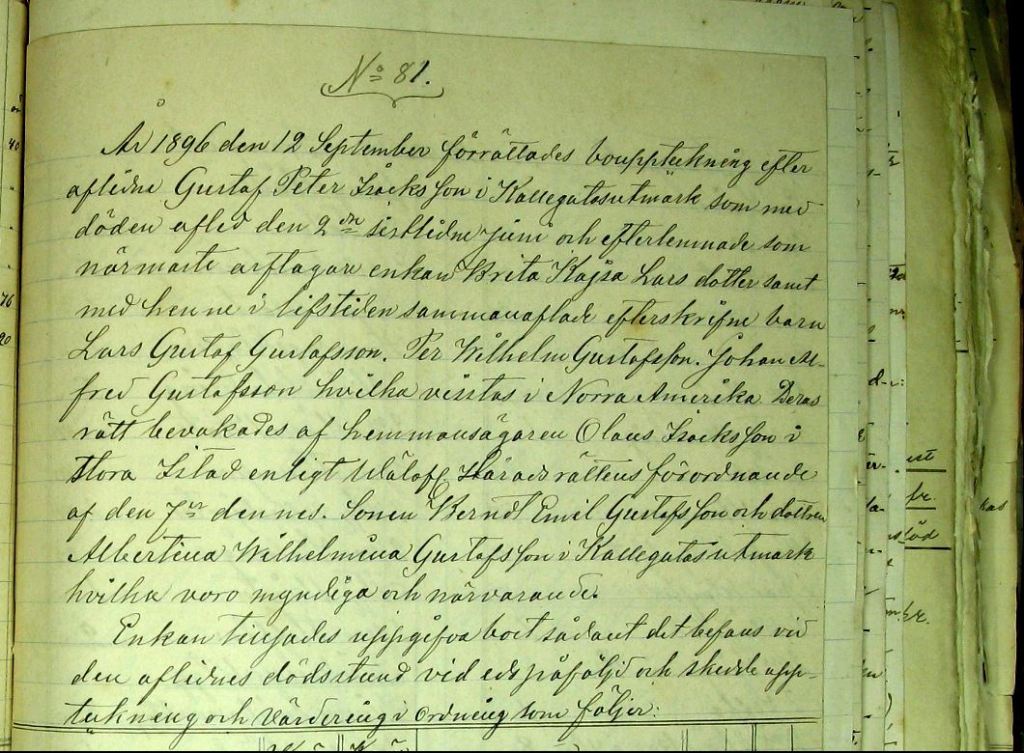 No 81.
År 1896 den 12 September förrättades bouppteckning efter
aflidne Gustaf Peter Isacksson i Kallegatasutmark som med
döden afled den 2dn sistlidne juni och efterlemnade som
närmaste arftagare enkan Brita Kajsa Lars dotter samt
med henne i lifstiden sammanaflade efterskrifne barn
Lars Gustaf Gustafsson. Per Wilhelm Gustafsson. Johan Al-
fred Gustafsson hvilka vistas i Norra Amerika Deras
rätt bevakades af hemmansägaren Olaus Isacksson i
Stora Istad enligt Häradsrättens förordnande
af den 7de dennes. Sonen Berndt Emil Gustafsson och dottren
Albertina Wilhelmina Gustafsson i Kallegatasutmark
hvilka voro myndiga och närvarande.
Enkan tillsades uppgifva boet sådant det befans vid
den aflidnes dödsstund vid edspåföljd och skedde upp-
teckning och värdering i ordning som följer: